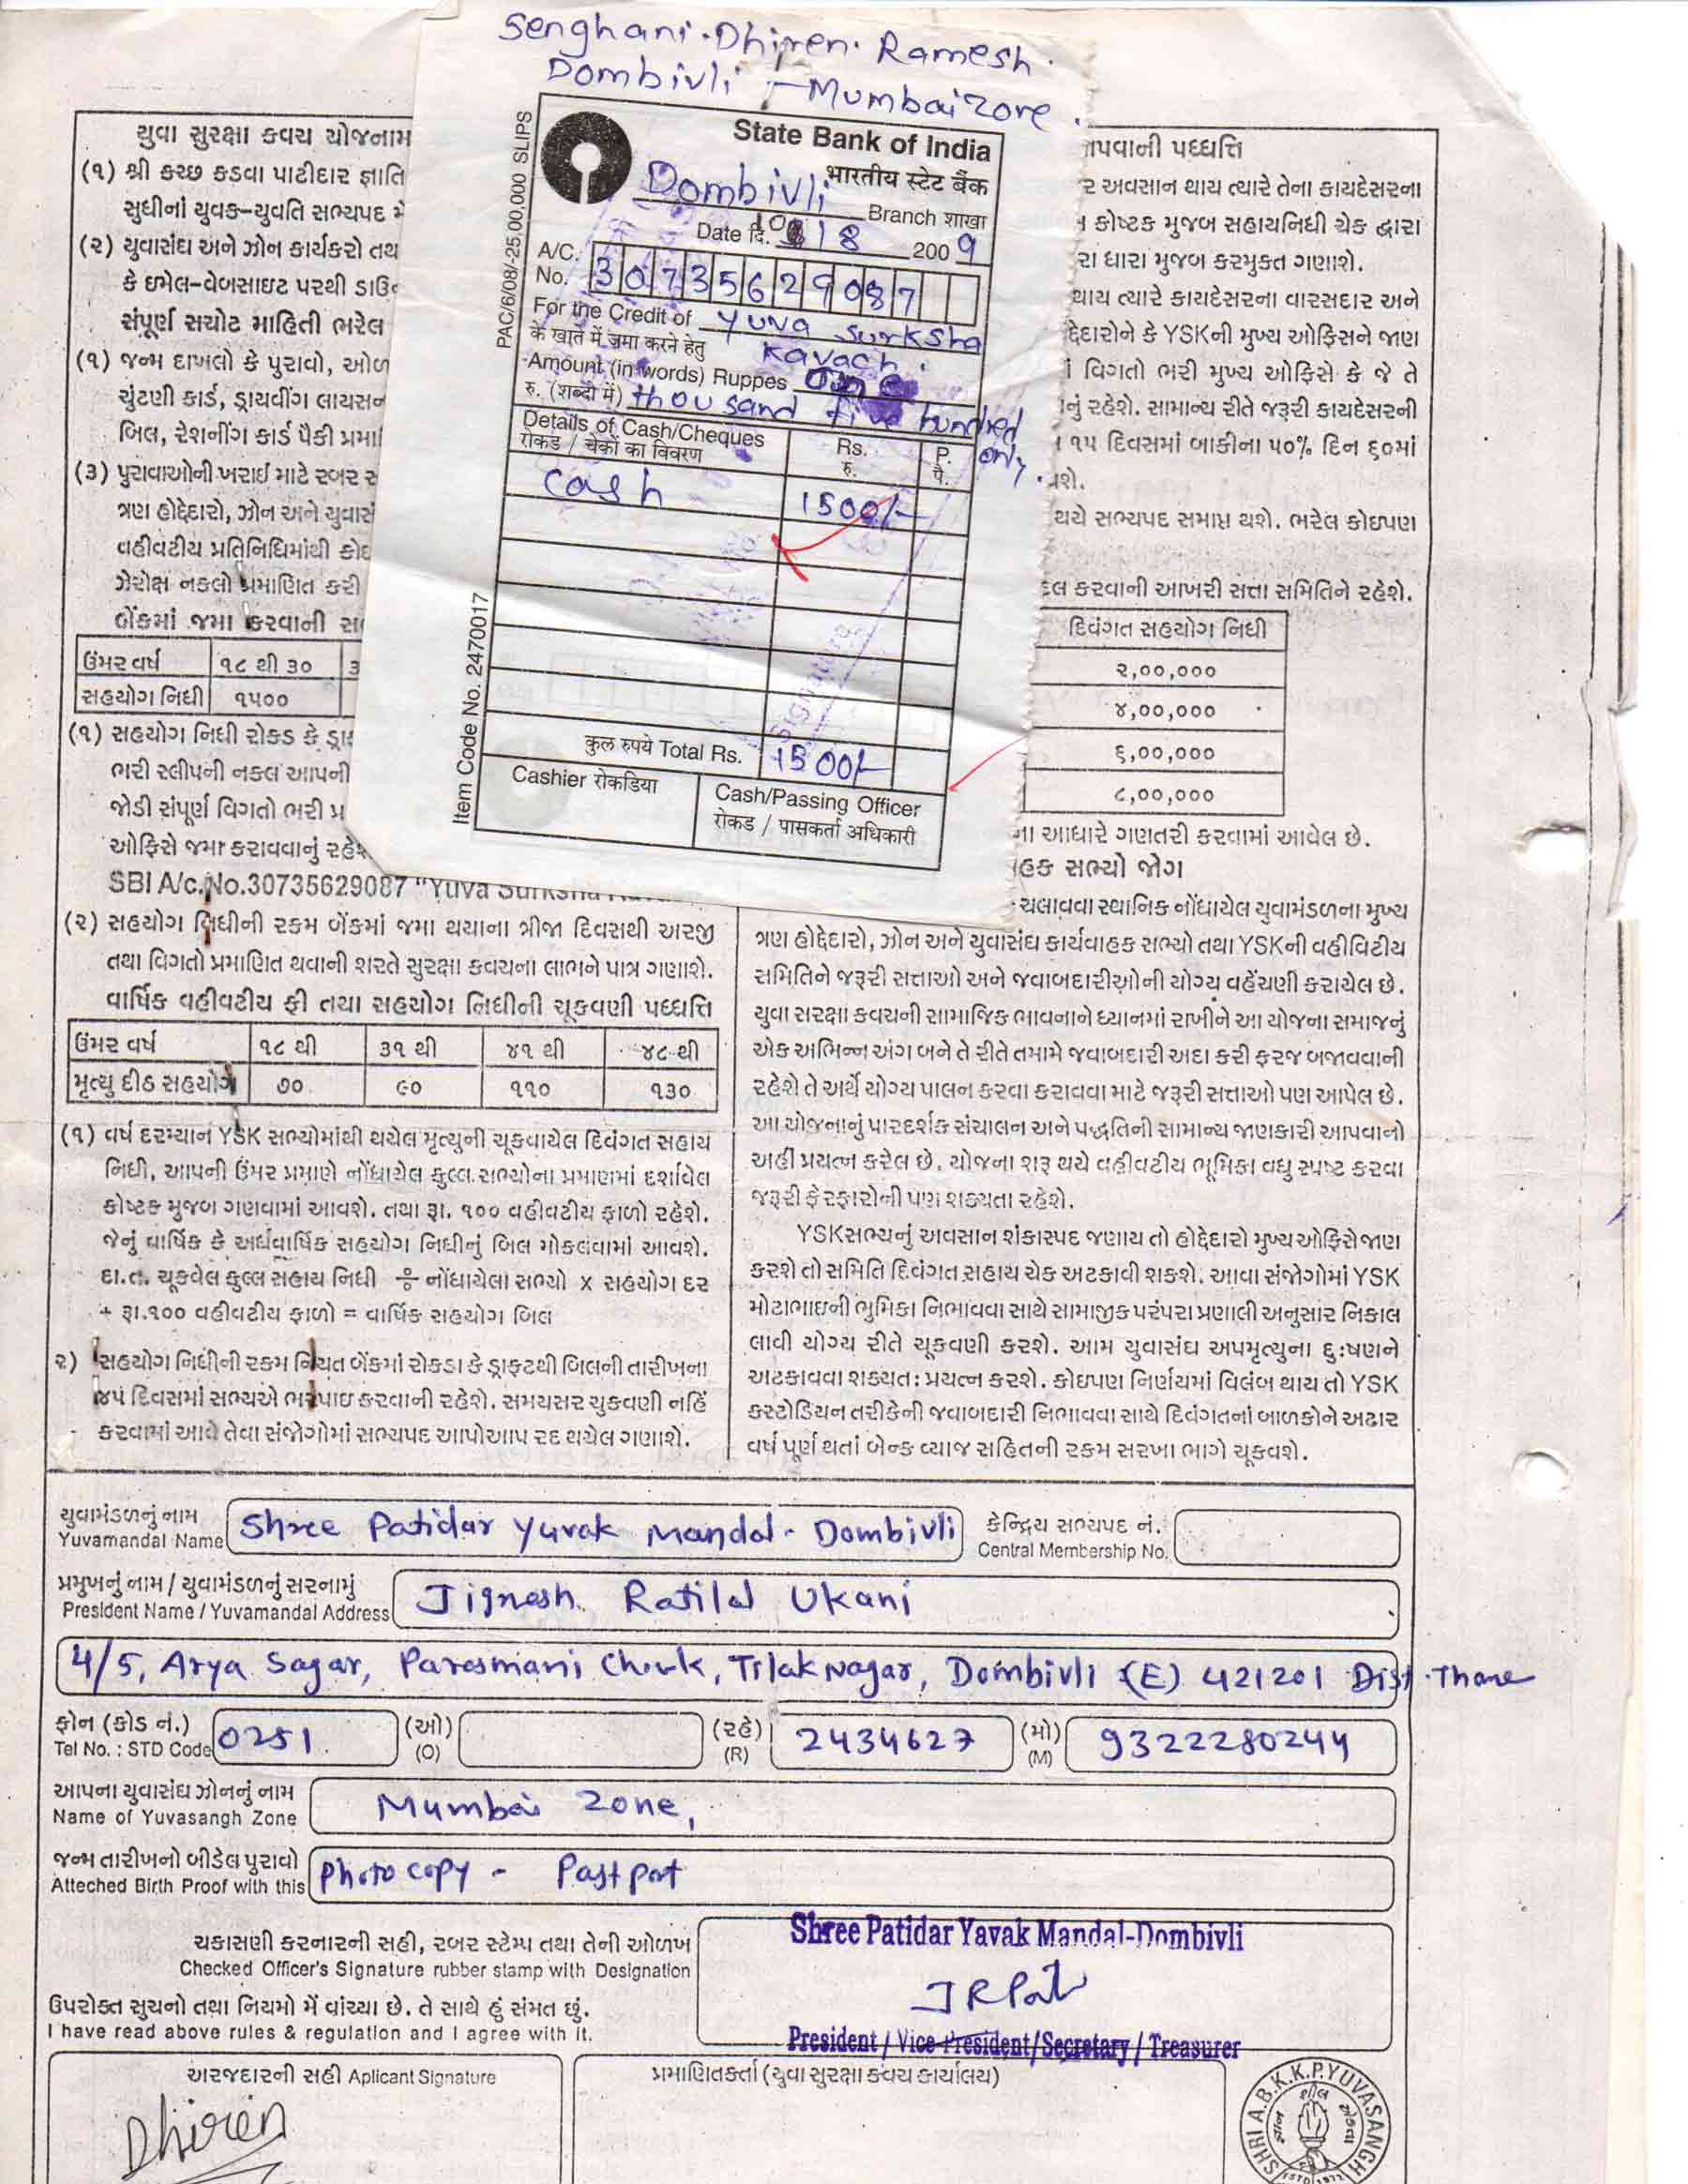 Senghani. Dhiren. Ramesh.
Dombivli - Mumbai zone.
PAC/6/08/-25,00,000 SLIPS
Item Code No. 2470017
State Bank of India
भारतीय स्टेट बैंक
Dombivli
Branch शाखा
Date दि. 18 2009
A/C. No. 30735629087
For the Credit of Yuva Surksha
के खाते में जमा करने हेतु Kavach.
Amount (in words) Ruppes One
रु. (शब्दों में) thousand five hundred only.
Details of Cash/Cheques Rs. P.
रोकड / चेकों का विवरण रु. पै.
Cash 1500/-
Signature
कुल रुपये Total Rs. 1500/-
Cashier रोकडिया
Cash/Passing Officer
रोकड / पासकर्ता अधिकारी
યુવા સુરક્ષા કવચ યોજનામ
(૧) શ્રી કચ્છ કડવા પાટીદાર જ્ઞાતિ
સુધીનાં યુવક-યુવતિ સભ્યપદ મે
(૨) યુવાસંઘ અને ઝોન કાર્યકરો તથ
કે ઇમેલ-વેબસાઇટ પરથી ડાઉન
સંપૂર્ણ સચોટ માહિતી ભરેલ
(૧) જન્મ દાખલો કે પુરાવો, ઓળ
ચુંટણી કાર્ડ, ડ્રાયવીંગ લાયસન
બિલ, રેશનીંગ કાર્ડ પૈકી પ્રમા
(૩) પુરાવાઓની ખરાઈ માટે રબર સ
ત્રણ હોદ્દેદારો, ઝોન અને યુવાસં
વહીવટીય પ્રતિનિધિમાંથી કોઇ
ઝેરોક્ષ નકલો પ્રમાણિત કરી
બેંકમાં જમા કરવાની સ
ઉંમર વર્ષ ૧૮ થી ૩૦ ૩
સહયોગ નિધી ૧૫૦૦
(૧) સહયોગ નિધી રોકડ કે ડ્રા
ભરી સ્લીપની નકલ આપની
જોડી સંપૂર્ણ વિગતો ભરી પ્ર
ઓફિસે જમા કરાવવાનું રહે
SBI A/c. No.30735629087 "Yuva Surksha
(૨) સહયોગ નિધીની રકમ બેંકમાં જમા થયાના ત્રીજા દિવસથી અરજી
તથા વિગતો પ્રમાણિત થવાની શરતે સુરક્ષા કવચના લાભને પાત્ર ગણાશે.
વાર્ષિક વહીવટીય ફી તથા સહયોગ નિધીની ચૂકવણી પધ્ધતિ
ઉંમર વર્ષ ૧૮ થી ૩૧ થી ૪૧ થી ૪૮ થી
મૃત્યુ દીઠ સહયોગ ૭૦ ૯૦ ૧૧૦ ૧૩૦
(૧) વર્ષ દરમ્યાન YSK સભ્યોમાંથી થયેલ મૃત્યુની ચૂકવાયેલ દિવંગત સહાય
નિધી, આપની ઉંમર પ્રમાણે નોંધાયેલ કુલ્લ સભ્યોના પ્રમાણમાં દર્શાવેલ
કોષ્ટક મુજબ ગણવામાં આવશે. તથા રૂા. ૧૦૦ વહીવટીય ફાળો રહેશે.
જેનું વાર્ષિક કે અર્ધવાર્ષિક સહયોગ નિધીનું બિલ મોકલવામાં આવશે.
દા.ત. ચૂકવેલ કુલ્લ સહાય નિધી ÷ નોંધાયેલા સભ્યો x સહયોગ દર
+ રૂા.૧૦૦ વહીવટીય ફાળો = વાર્ષિક સહયોગ બિલ
૨) સહયોગ નિધીની રકમ નિયત બેંકમાં રોકડા કે ડ્રાફ્ટથી બિલની તારીખના
૪૫ દિવસમાં સભ્યએ ભરપાઇ કરવાની રહેશે. સમયસર ચુકવણી નહિં
કરવામાં આવે તેવા સંજોગોમાં સભ્યપદ આપોઆપ રદ થયેલ ગણાશે.
ાપવાની પધ્ધતિ
ર અવસાન થાય ત્યારે તેના કાયદેસરના
કોષ્ટક મુજબ સહાયનિધી ચેક દ્વારા
રા ધારા મુજબ કરમુક્ત ગણાશે.
થાય ત્યારે કાયદેસરના વારસદાર અને
દ્દેદારોને કે YSKની મુખ્ય ઓફિસને જાણ
વિગતો ભરી મુખ્ય ઓફિસે કે જે તે
નું રહેશે. સામાન્ય રીતે જરૂરી કાયદેસરની
૧૫ દિવસમાં બાકીના ૫૦% દિન ૬૦માં
શે.
થયે સભ્યપદ સમાપ્ત થશે. ભરેલ કોઇપણ
દલ કરવાની આખરી સત્તા સમિતિને રહેશે.
દિવંગત સહયોગ નિધી
૨,૦૦,૦૦૦
૪,૦૦,૦૦૦
૬,૦૦,૦૦૦
૮,૦૦,૦૦૦
ના આધારે ગણતરી કરવામાં આવેલ છે.
હક સભ્યો જોગ
ચલાવવા સ્થાનિક નોંધાયેલ યુવામંડળના મુખ્ય
ત્રણ હોદ્દેદારો, ઝોન અને યુવાસંઘ કાર્યવાહક સભ્યો તથા YSKની વહીવિટીય
સમિતિને જરૂરી સત્તાઓ અને જવાબદારીઓની યોગ્ય વહેંચણી કરાયેલ છે.
યુવા સરક્ષા કવચની સામાજિક ભાવનાને ધ્યાનમાં રાખીને આ યોજના સમાજનું
એક અભિન્ન અંગ બને તે રીતે તમામે જવાબદારી અદા કરી ફરજ બજાવવાની
રહેશે તે અર્થે યોગ્ય પાલન કરવા કરાવવા માટે જરૂરી સત્તાઓ પણ આપેલ છે.
આ યોજનાનું પારદર્શક સંચાલન અને પદ્ધતિની સામાન્ય જાણકારી આપવાનો
અહીં પ્રયત્ન કરેલ છે. યોજના શરૂ થયે વહીવટીય ભૂમિકા વધુ સ્પષ્ટ કરવા
જરૂરી ફેરફારોની પણ શક્યતા રહેશે.
YSKસભ્યનું અવસાન શંકાસ્પદ જણાય તો હોદ્દેદારો મુખ્ય ઓફિસે જાણ
કરશે તો સમિતિ દિવંગત સહાય ચેક અટકાવી શકશે. આવા સંજોગોમાં YSK
મોટાભાઇની ભુમિકા નિભાવવા સાથે સામાજીક પરંપરા પ્રણાલી અનુસાર નિકાલ
લાવી યોગ્ય રીતે ચૂકવણી કરશે. આમ યુવાસંઘ અપમૃત્યુના દુઃષણને
અટકાવવા શક્યતઃ પ્રયત્ન કરશે. કોઇપણ નિર્ણયમાં વિલંબ થાય તો YSK
કસ્ટોડિયન તરીકેની જવાબદારી નિભાવવા સાથે દિવંગતનાં બાળકોને અઢાર
વર્ષ પૂર્ણ થતાં બેન્ક વ્યાજ સહિતની રકમ સરખા ભાગે ચૂકવશે.
યુવામંડળનું નામ
Yuvamandal Name Shree Patidar Yuvak Mandal - Dombivli
કેન્દ્રિય સભ્યપદ નં.
Central Membership No.
પ્રમુખનું નામ / યુવામંડળનું સરનામું
President Name / Yuvamandal Address Jignesh Ratilal Ukani
4/5, Arya Sagar, Parasmani Chowk, Tilak Nagar, Dombivli (E) 421201 Dist. Thane
ફોન (કોડ નં.) (ઓ) (રહે) (મો)
Tel No. : STD Code 0251 (O) (R) 2434627 (M) 9322280244
આપના યુવાસંઘ ઝોનનું નામ
Name of Yuvasangh Zone Mumbai Zone,
જન્મ તારીખનો બીડેલ પુરાવો
Atteched Birth Proof with this Photo copy - Passport
ચકાસણી કરનારની સહી, રબર સ્ટેમ્પ તથા તેની ઓળખ
Checked Officer's Signature rubber stamp with Designation
Shree Patidar Yavak Mandal-Dombivli
JRPatel
President / Vice President / Secretary / Treasurer
ઉપરોક્ત સુચનો તથા નિયમો મેં વાંચ્યા છે. તે સાથે હું સંમત છું.
I have read above rules & regulation and I agree with it.
અરજદારની સહી Aplicant Signature
Dhiren
પ્રમાણિતકર્તા (યુવા સુરક્ષા કવચ કાર્યાલય)
SHRI A.B.K.K.P.YUVASANGH